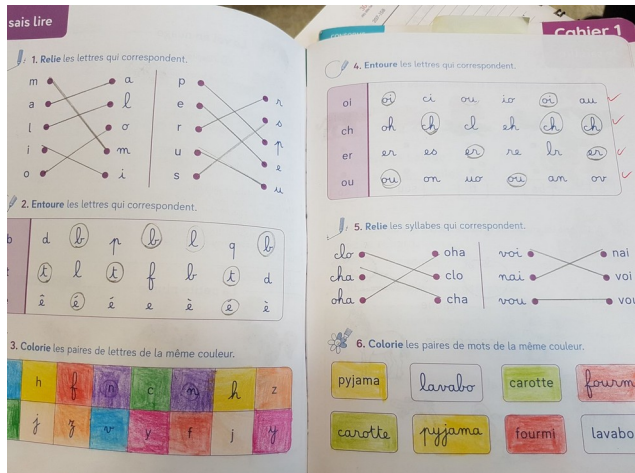 sais lire
1. Relie les lettres qui correspondent.
m a p
a l e r
l o r s
i m u p
o i s e
u
2. Entoure les lettres qui correspondent.
b d b p b l q b
t l t f b t d
ê é é e è é è
3. Colorie les paires de lettres de la même couleur.
h f n c n h z
j z v y f j y
Cahier 1
4. Entoure les lettres qui correspondent.
oi oi ci ou io oi au
ch oh ch cl eh ch ch
er er es er re lr er
ou ou on uo ou an ov
5. Relie les syllabes qui correspondent.
clo oha voi nai
cha clo nai voi
oha cha vou vou
6. Colorie les paires de mots de la même couleur.
pyjama lavabo carotte fourm
carotte pyjama fourmi lavabo